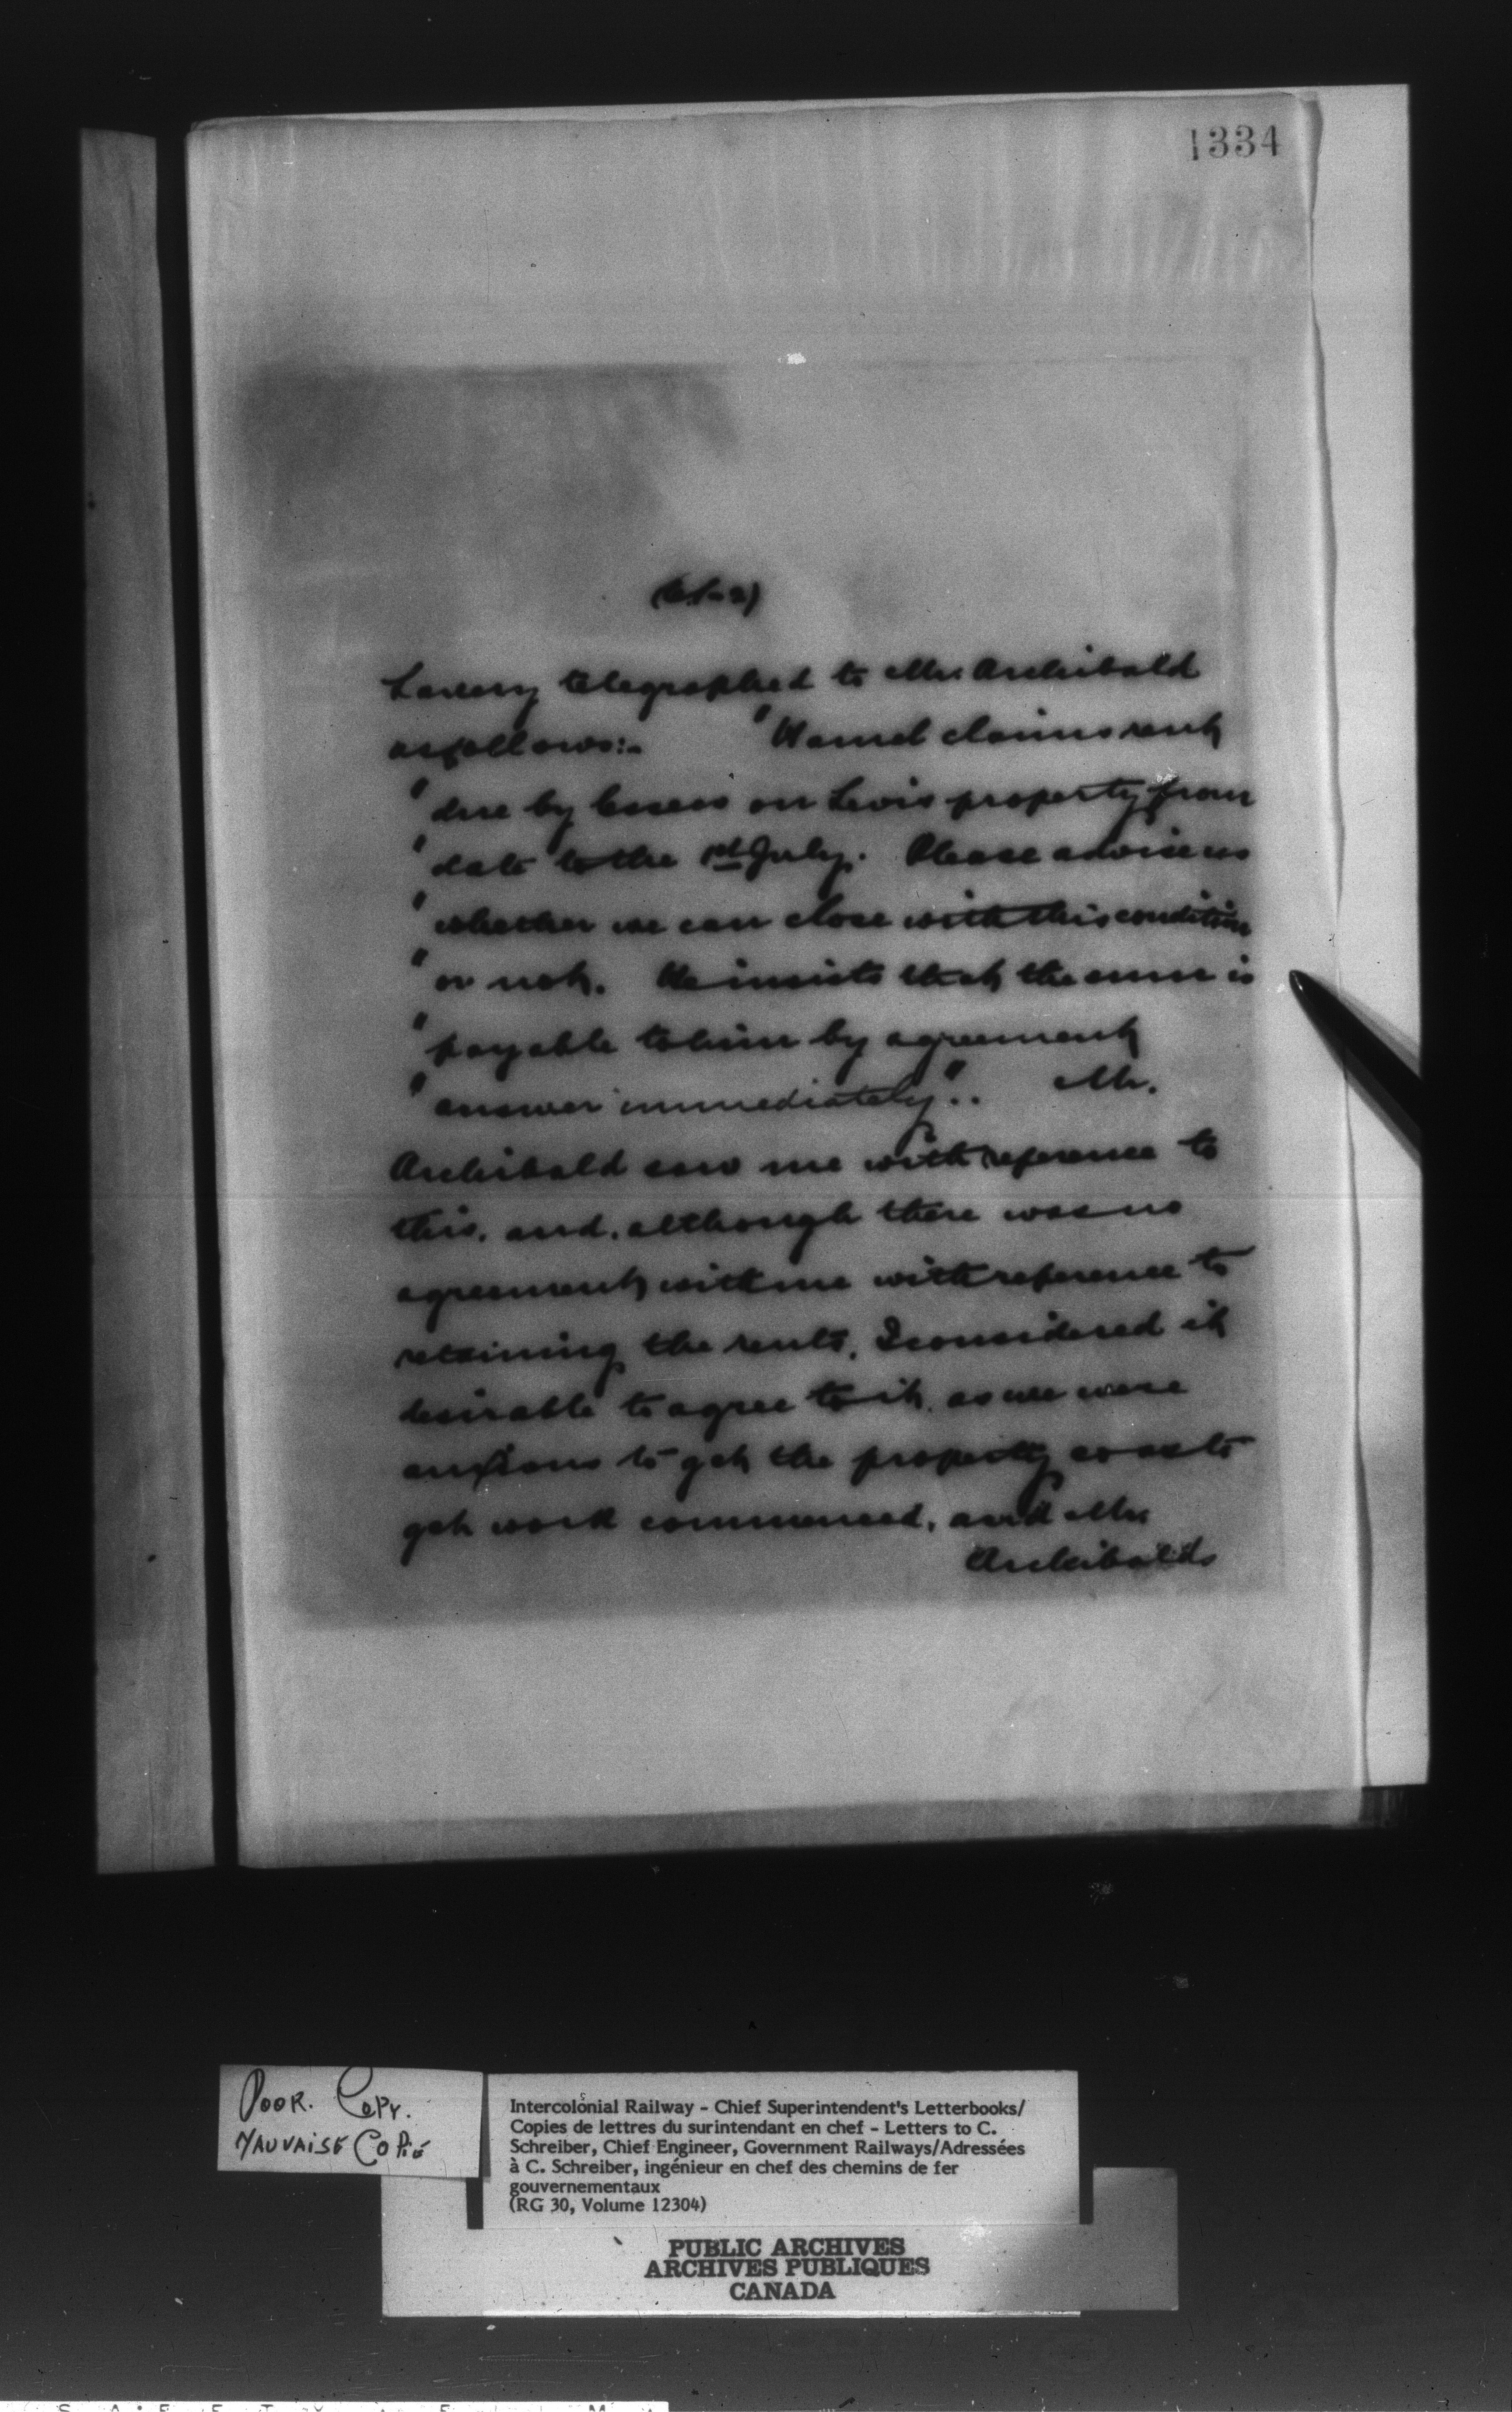 1334
telegraphed to Mr. Archibald
as follows:- "Hamel claims rent
"due by lessees on Levis property from
"date to the 1st July. Please advise us
"whether we can close with this condition
"or not. He insists that the sum is
"payable to him by agreement
"answer immediately".. Mr.
Archibald saw me with reference to
this, and, although there was no
agreement with me with reference to
retaining the rents, I considered it
desirable to agree to it, as we were
anxious to get the property so as to
get work commenced, and Mr
Archibalds
POOR. COPY.
MAUVAISE COPIE
Intercolonial Railway - Chief Superintendent's Letterbooks/
Copies de lettres du surintendant en chef - Letters to C.
Schreiber, Chief Engineer, Government Railways/Adressées
à C. Schreiber, ingénieur en chef des chemins de fer
gouvernementaux
(RG 30, Volume 12304)
PUBLIC ARCHIVES
ARCHIVES PUBLIQUES
CANADA